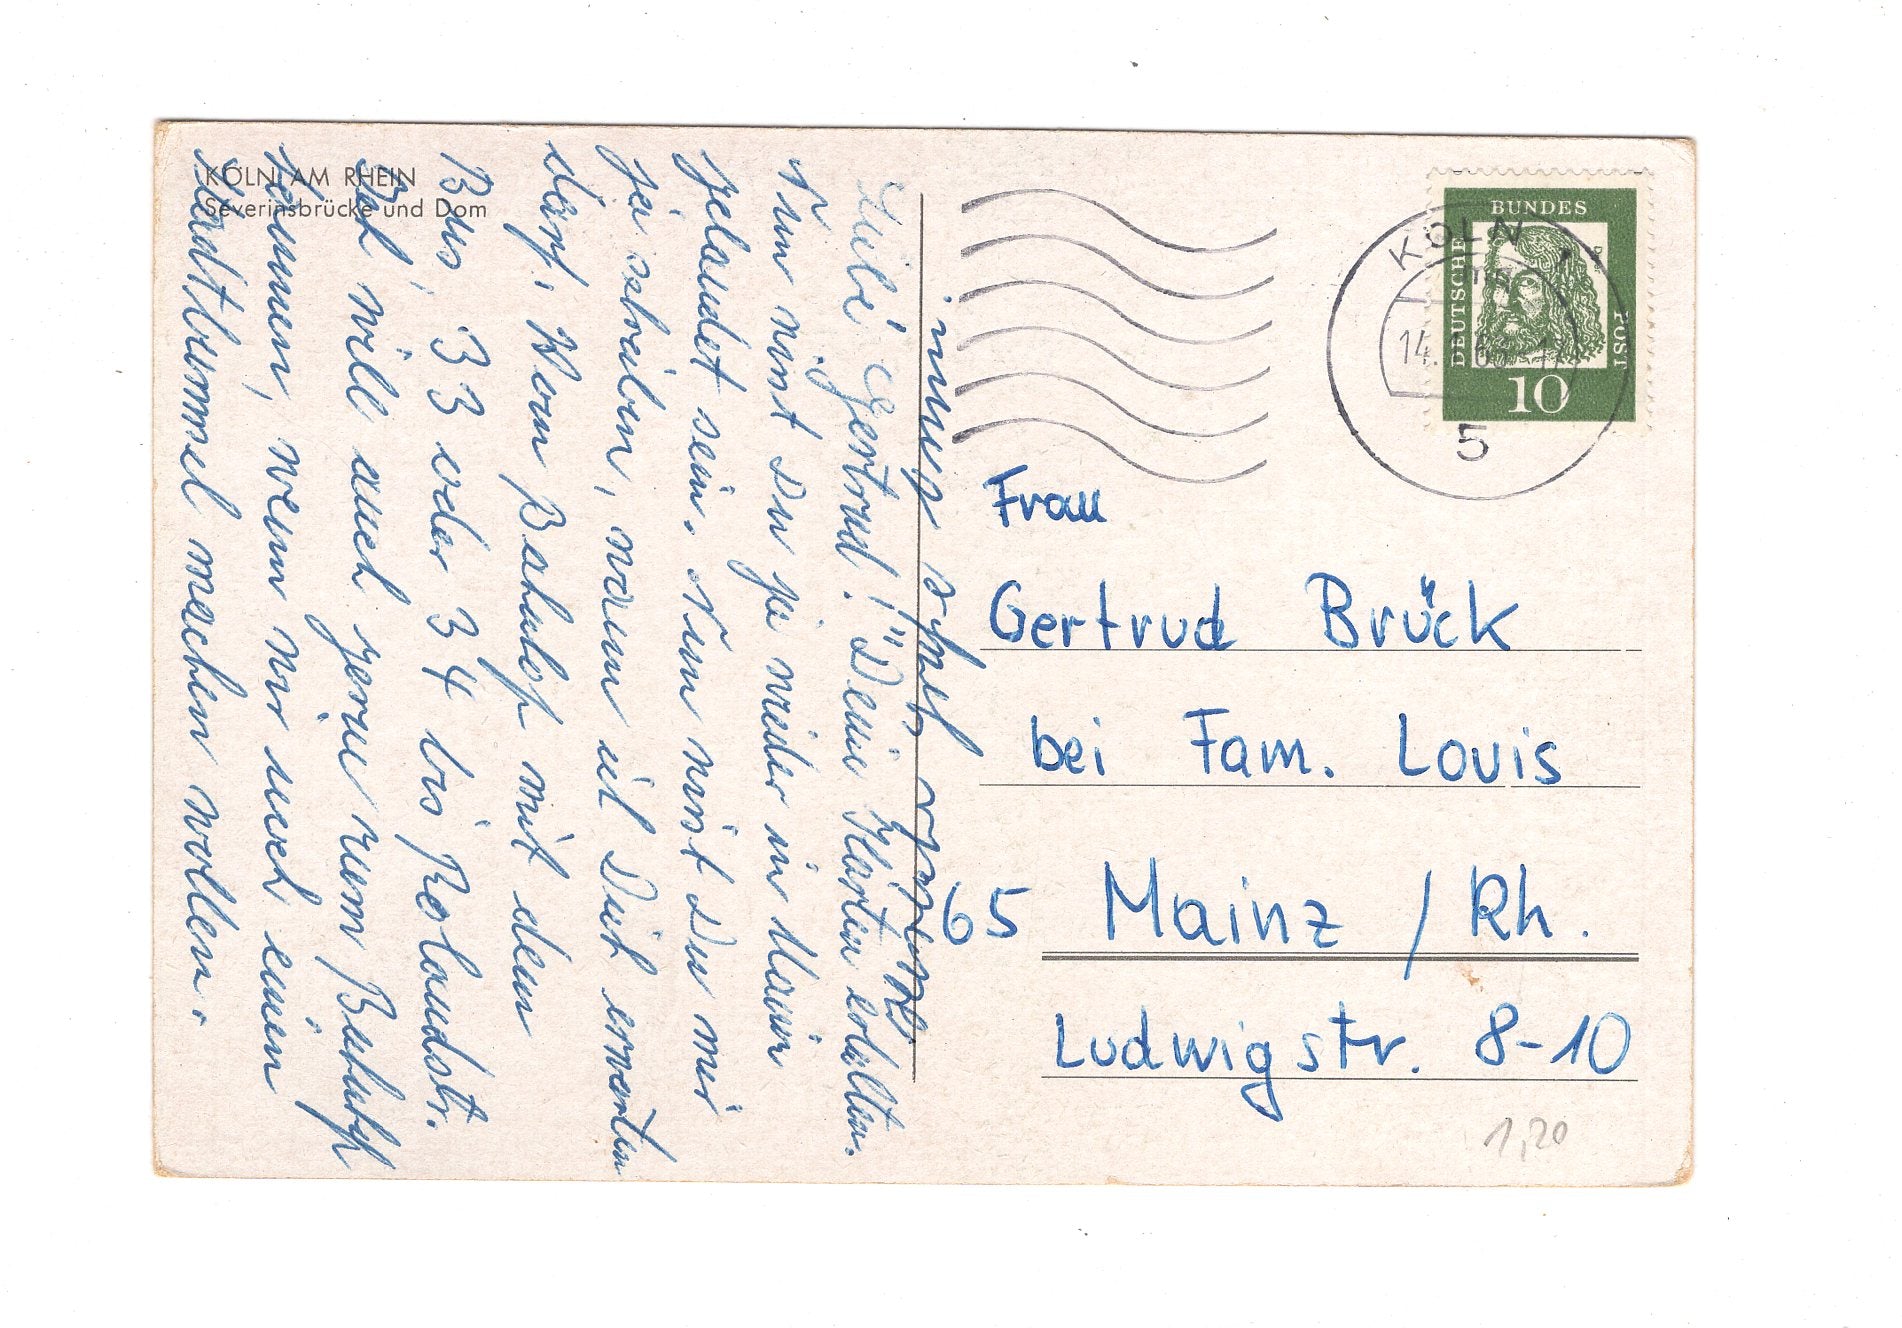 KÖLN AM RHEIN
Severinsbrücke und Dom
Liebe Gertrud! Deine Karten erhalten.
Nun wirst Du ja wieder in Mainz
gelandet sein. Nun mußt Du mir
ja schreiben, wann ich Dich erwarten
darf. Vom Bahnhof mit dem
Bus 33 oder 34 bis Rolandstr.
Ich will auch gerne zum Bahnhof
kommen, wenn wir noch einen
Stadtbummel machen wollen.
innig
KÖLN
14.
5
DEUTSCHE
BUNDES
POST
10
Frau
Gertrud Brück
bei Fam. Louis
65 Mainz / Rh.
Ludwigstr. 8-10
1,20